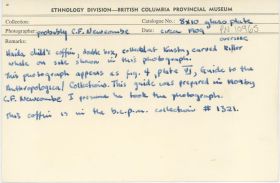 ETHNOLOGY DIVISION—BRITISH COLUMBIA PROVINCIAL MUSEUM
Collection: Catalogue No.: 8x10 glass plate
Photographer: probably C.F. Newcombe Date: circa 1909 PN 10965
Remarks: oversize
Haida child's coffin, double box, collected at Kinsky, carved killer
whale on side shown in this photograph.
This photograph appears as fig. 4, plate VI, Guide to the
Anthropological Collections. This guide was prepared in 1909 by
C.F. Newcombe I presume he took the photograph.
This coffin is in the b.c.p.m. collection # 1321.